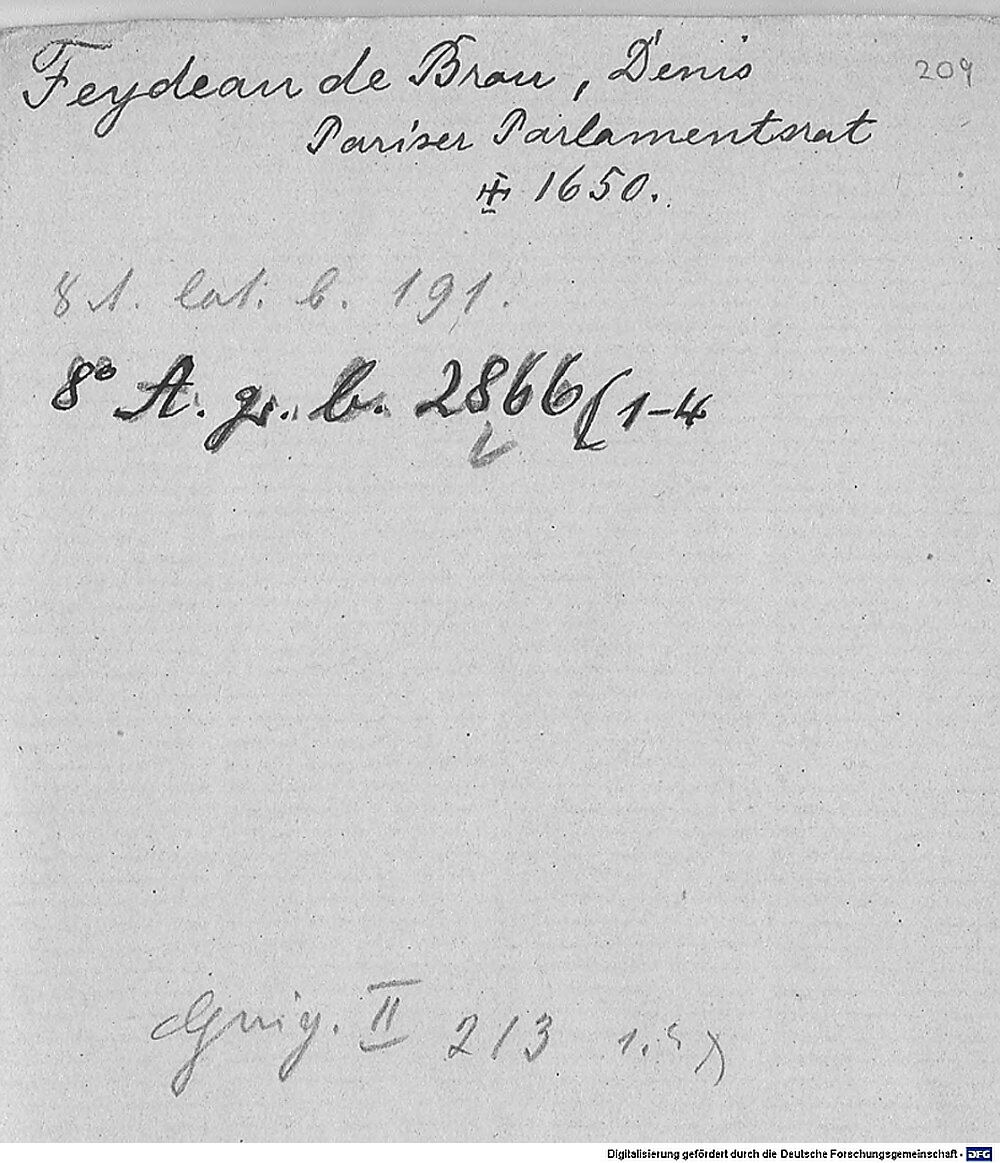 Feydeau de Brou, Denis
209
Pariser Parlamentsrat
† 1650.
8 A. lat. b. 191.
8° A. gr. b. 2866 (1-4
Guig. II 213
Digitalisierung gefördert durch die Deutsche Forschungsgemeinschaft - DFG